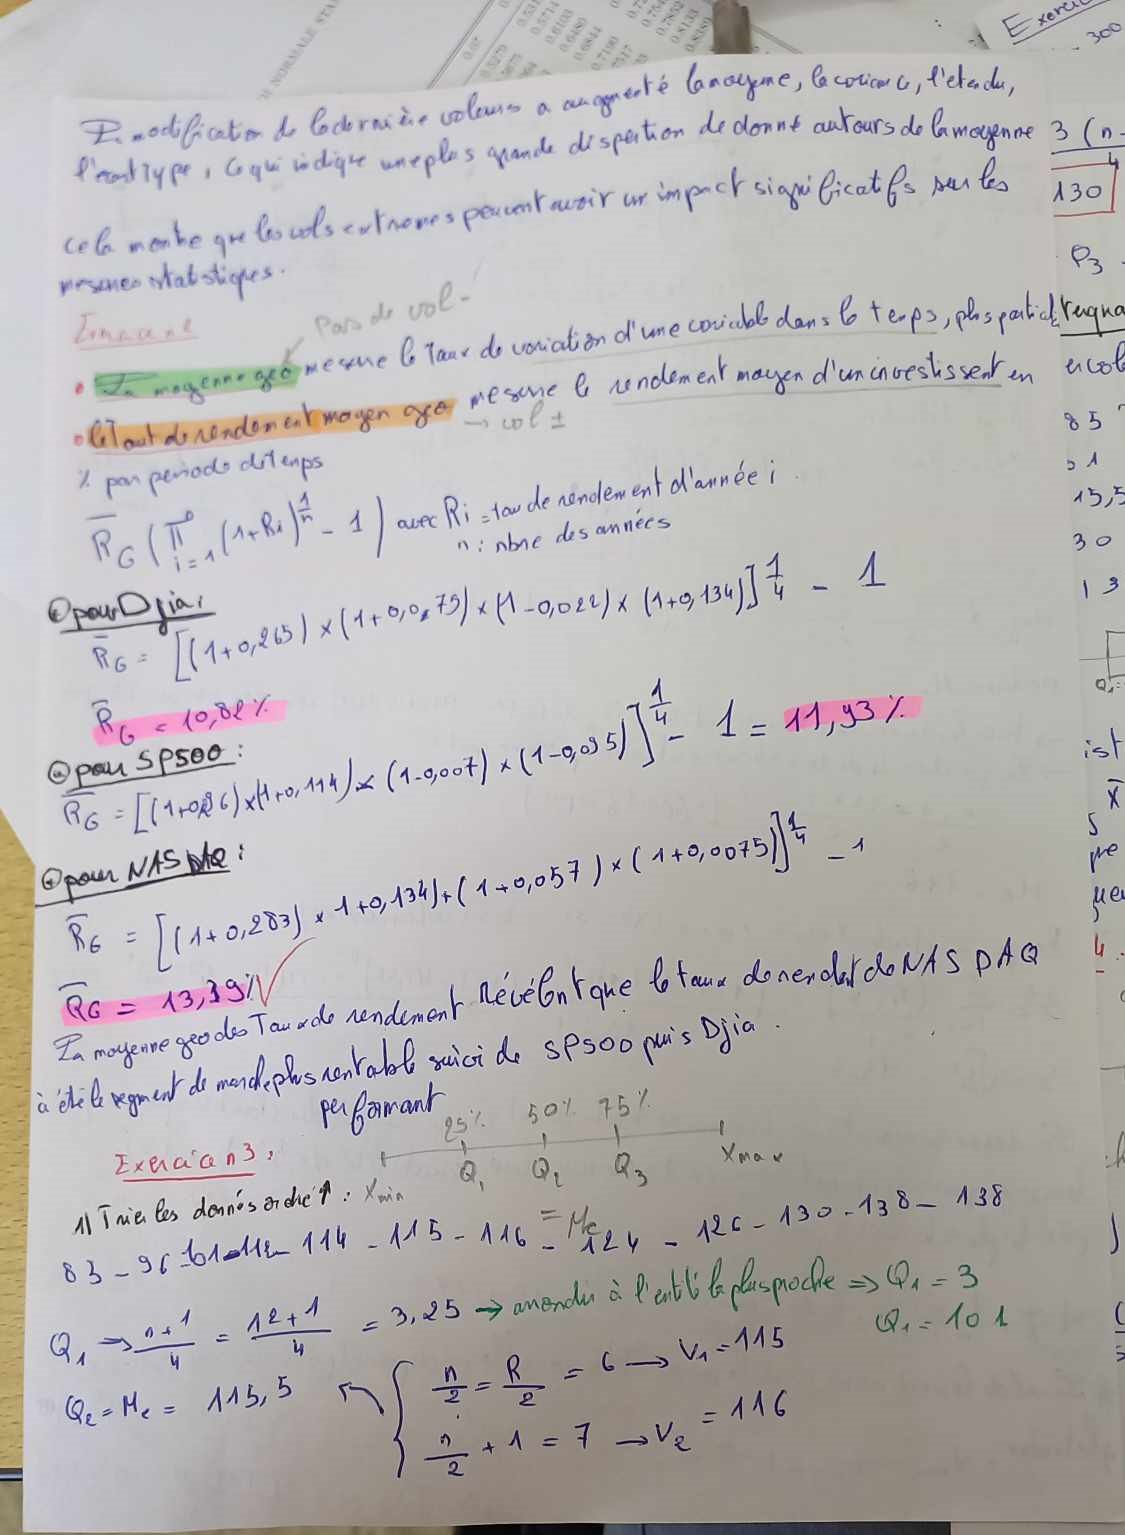 La modification de la dernière valeurs a augmenté la moyenne, la variance, l'étendu,
l'ecart type, ce qui indique une plus grande dispertion de donné autours de la moyenne
cela montre que les vals extremes peuvent avoir un impact significatifs sur les
mesures statistiques.
Exercice n2
Pas de val -
• La moyenne geo mesure le Taux de variation d'une variable dans le temps, plus particul
• le Taut de rendement moyen geo mesure le rendement moyen d'un investissent en
→ val ±
% par periode de temps
R̄G ( π i=1 (1+Ri)^1/n - 1 ) avec Ri = tau de rendement d'année i
n : nbre des années
pour Djia :
R̄G = [(1+0,265) × (1+0,0,79) × (1-0,022) × (1+0,134)]^1/4 - 1
R̄G = 10,82%
pour SP500 :
R̄G = [(1+0,86) × (1+0,114) × (1-0,007) × (1-0,095)]^1/4 - 1 = 11,93%
pour NASDAQ :
R̄G = [(1+0,283) × 1+0,134) + (1+0,057) × (1+0,0075)]^1/4 - 1
R̄G = 13,39%
La moyenne geo des Taux de rendement Révélent que le taux de rendent de NASDAQ
à été le segment de marché plus rentable suivi de SP500 puis Djia.
performant
Exercice n3 :
25% 50% 75%
Xmin Q1 Q2 Q3 Xmax
= Me
1) Trier les donnés ordre ↑ :
83 - 96 - 101 - 112 - 114 - 115 - 116 - 124 - 126 - 130 - 138 - 138
Q1 → n+1/4 = 12+1/4 = 3,25 → arrondir à l'entité la plus proche ⇒ Q1 = 3
Q1 = 101
Q2 = Me = 115,5
n/2 = R/2 = 6 → V1 = 115
n/2 + 1 = 7 → V2 = 116
Exercic
300
3 (n-
4
130
P3
85
15,5
30
13
Q1=
ist
X̄
4